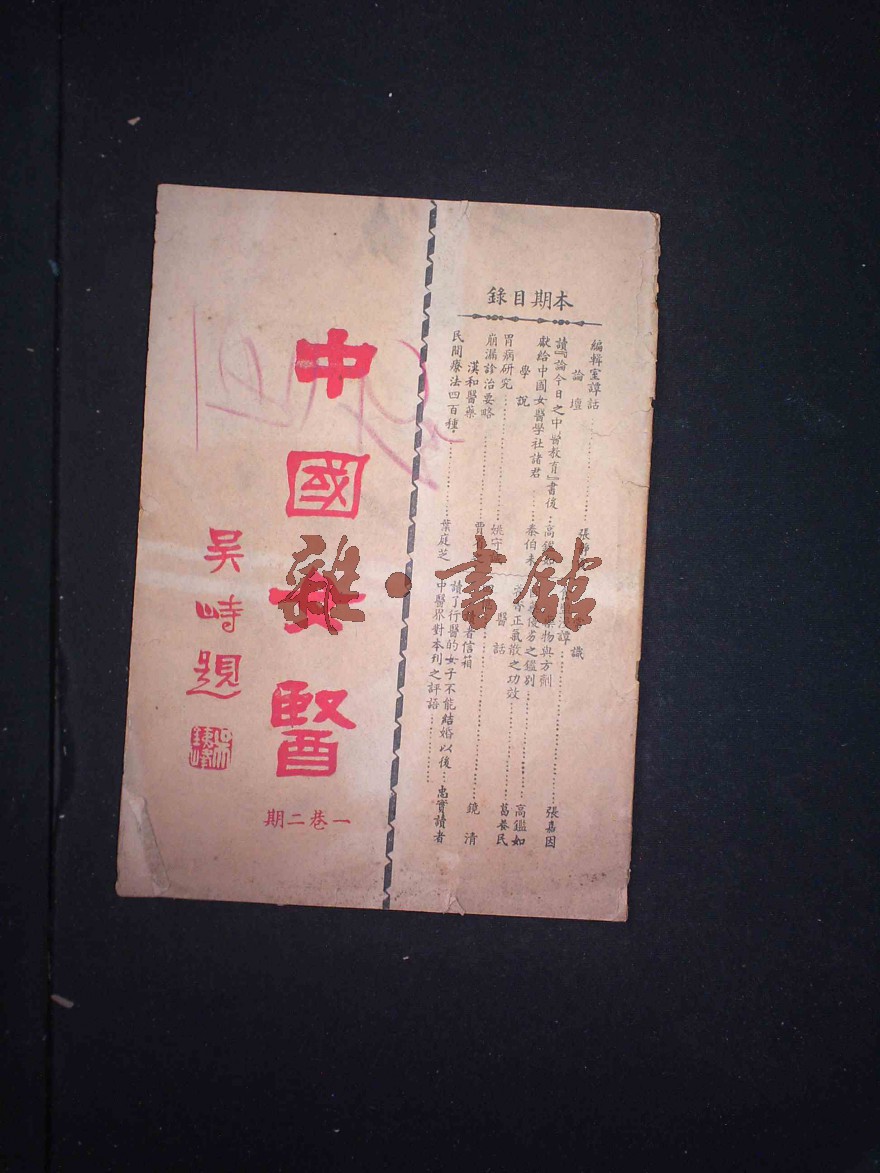 中國女醫
吳峙題
一卷二期
本期目錄
編輯室譚話
論壇
讀『論今日之中醫教育』書後 高鑑如
獻給中國女醫學社諸君 秦伯未
學說
胃病研究 姚
崩漏診治要略 賈
漢和醫藥
民間療法四百種 葉庭芝
識
藥物與方劑 張嘉因
優劣之鑑別 高鑑如
正氣散之功效 葛養民
醫話
鏡清
者信箱
讀了行醫的女子不能結婚以後 忠實讀者
中醫界對本刊之評語
雜·書館